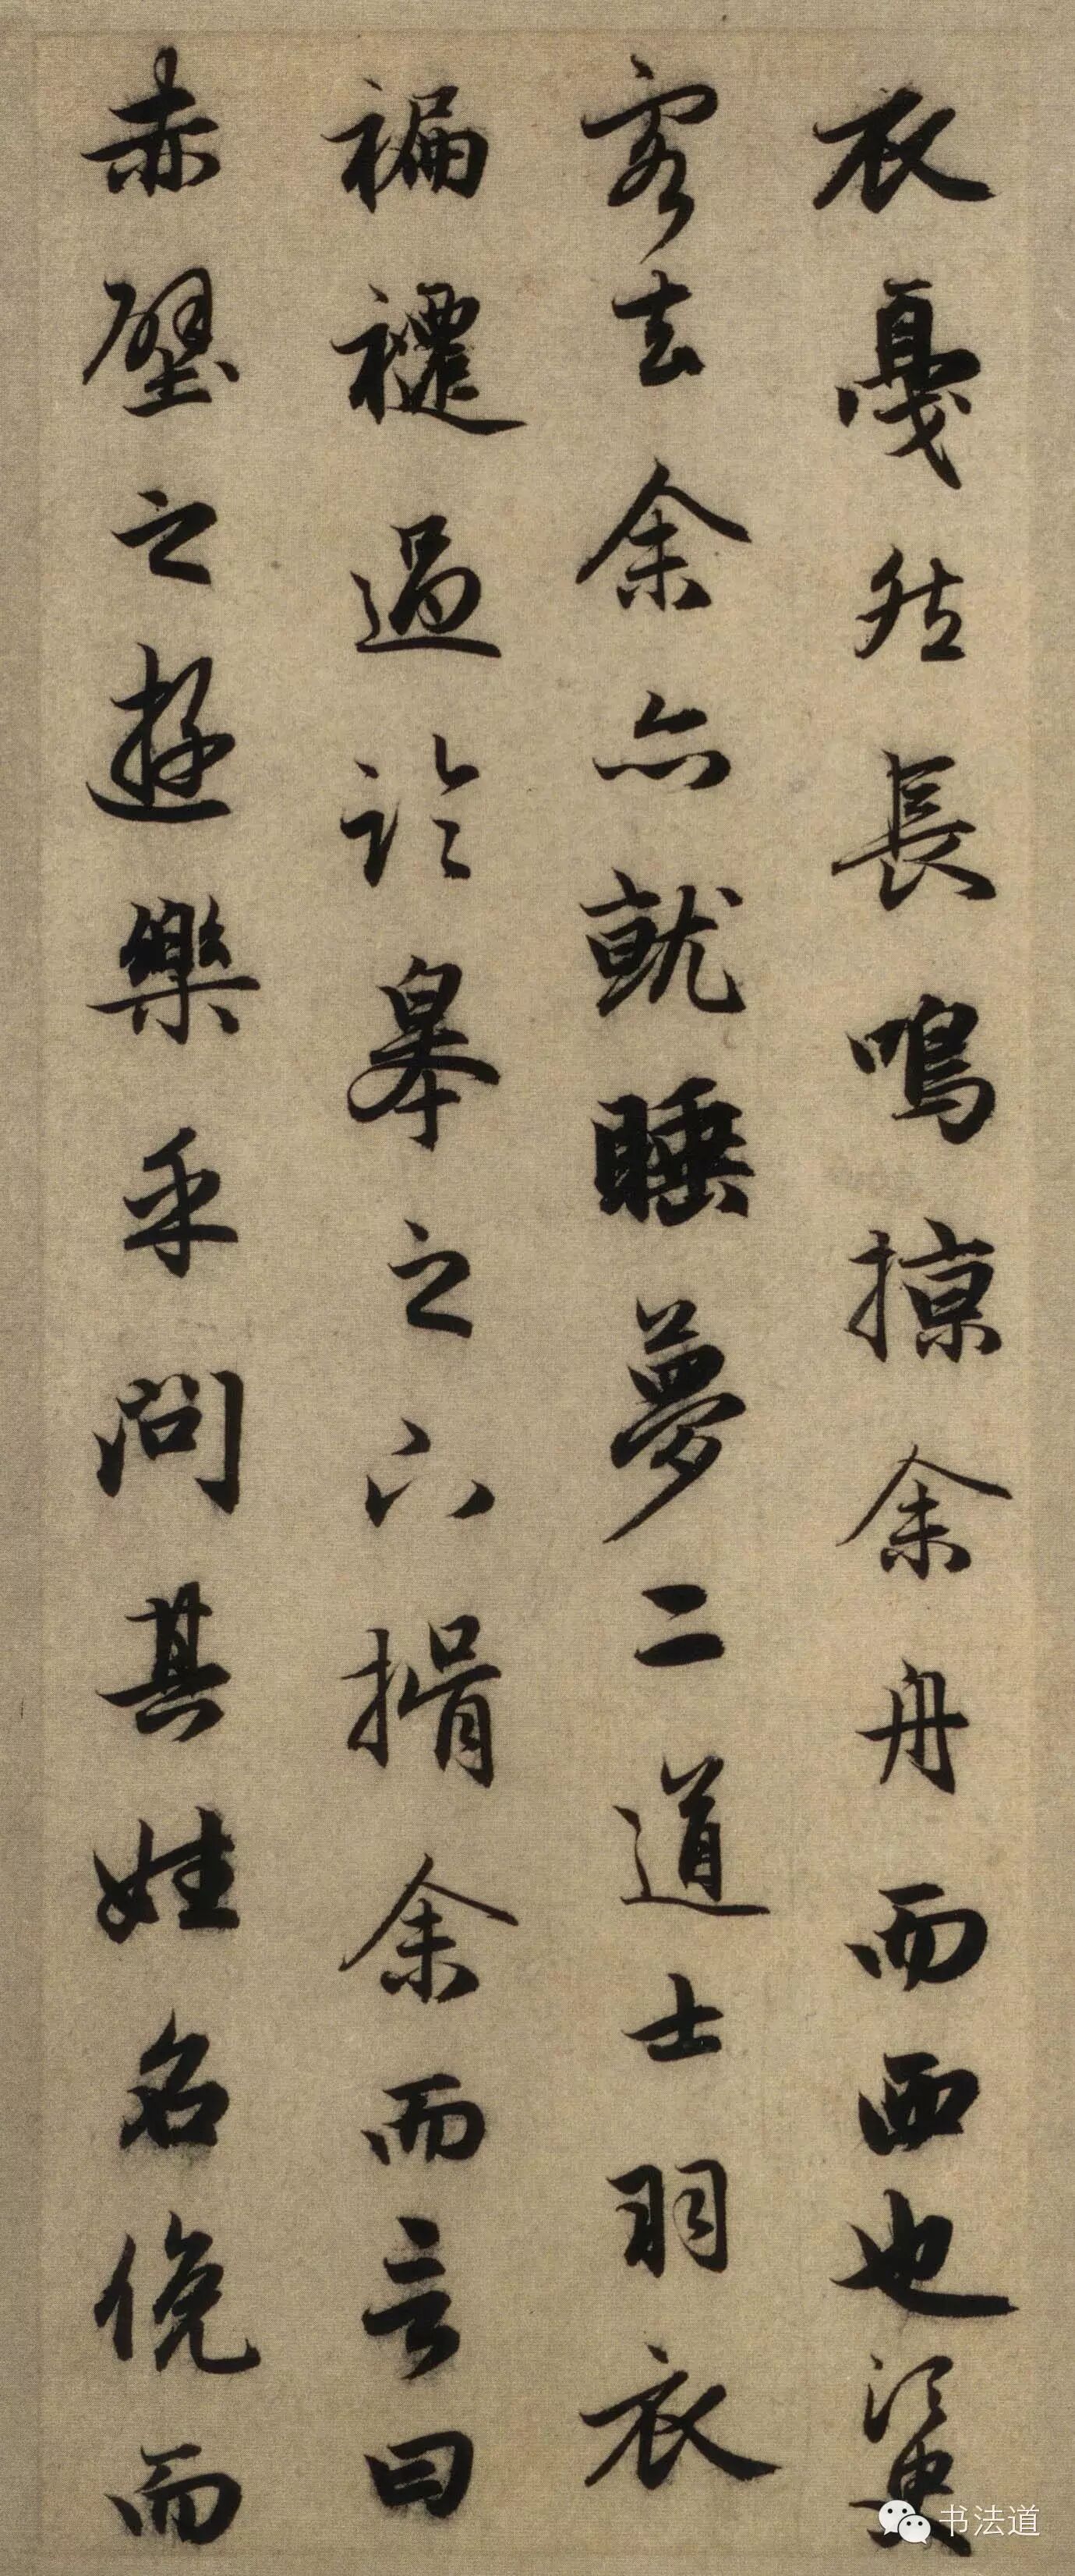 衣戛然長鳴掠余舟而西也須臾
客去余亦就睡夢二道士羽衣
褊褼過臨皋之下揖余而言曰
赤壁之遊樂乎問其姓名俛而
书法道